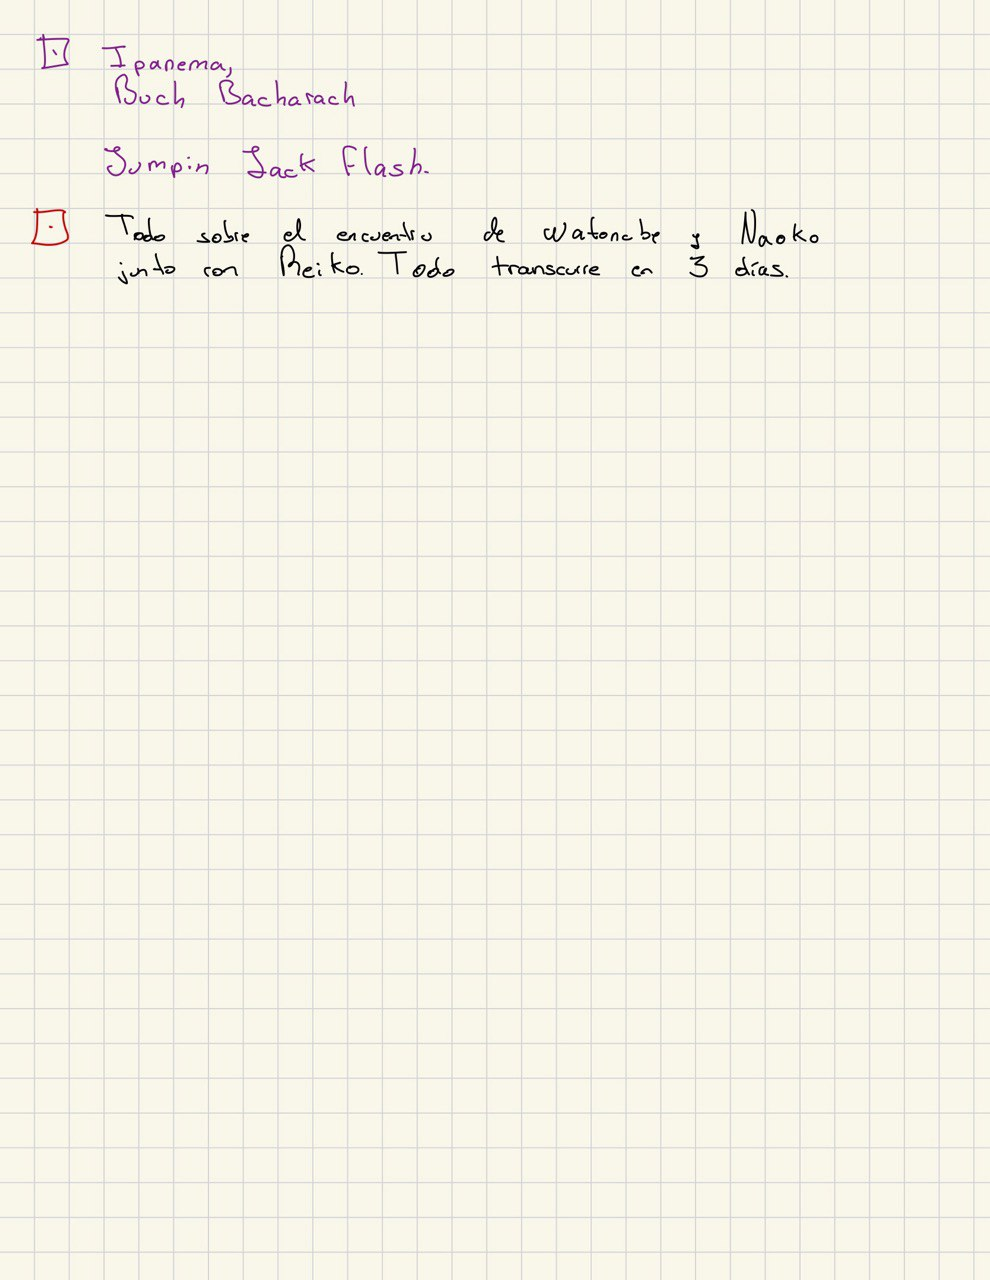 Ipanema,
Buch Bacharach
Jumpin Jack Flash.
Todo sobre el encuentro de Watanabe y Naoko
junto con Reiko. Todo transcurre en 3 días.